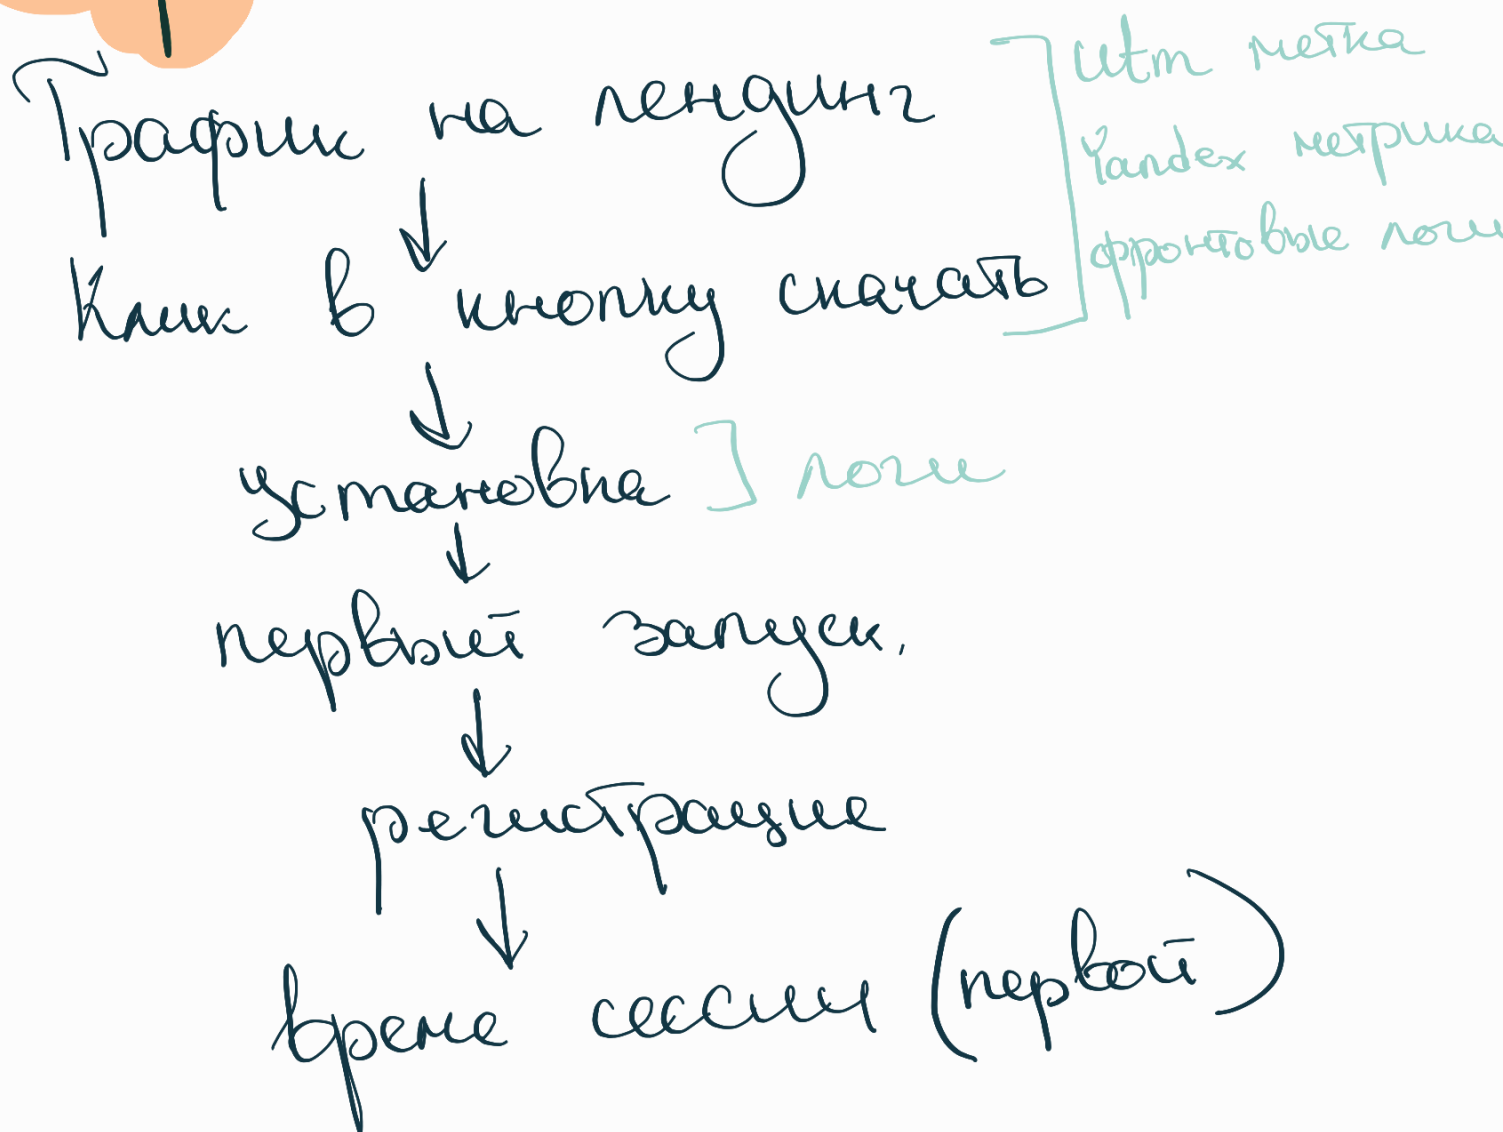 Трафик на лендинг
utm метка
Yandex метрика
фронтовые логи
Клик в кнопку скачать
установка
логи
первый запуск.
регистрация
время сессии (первой)